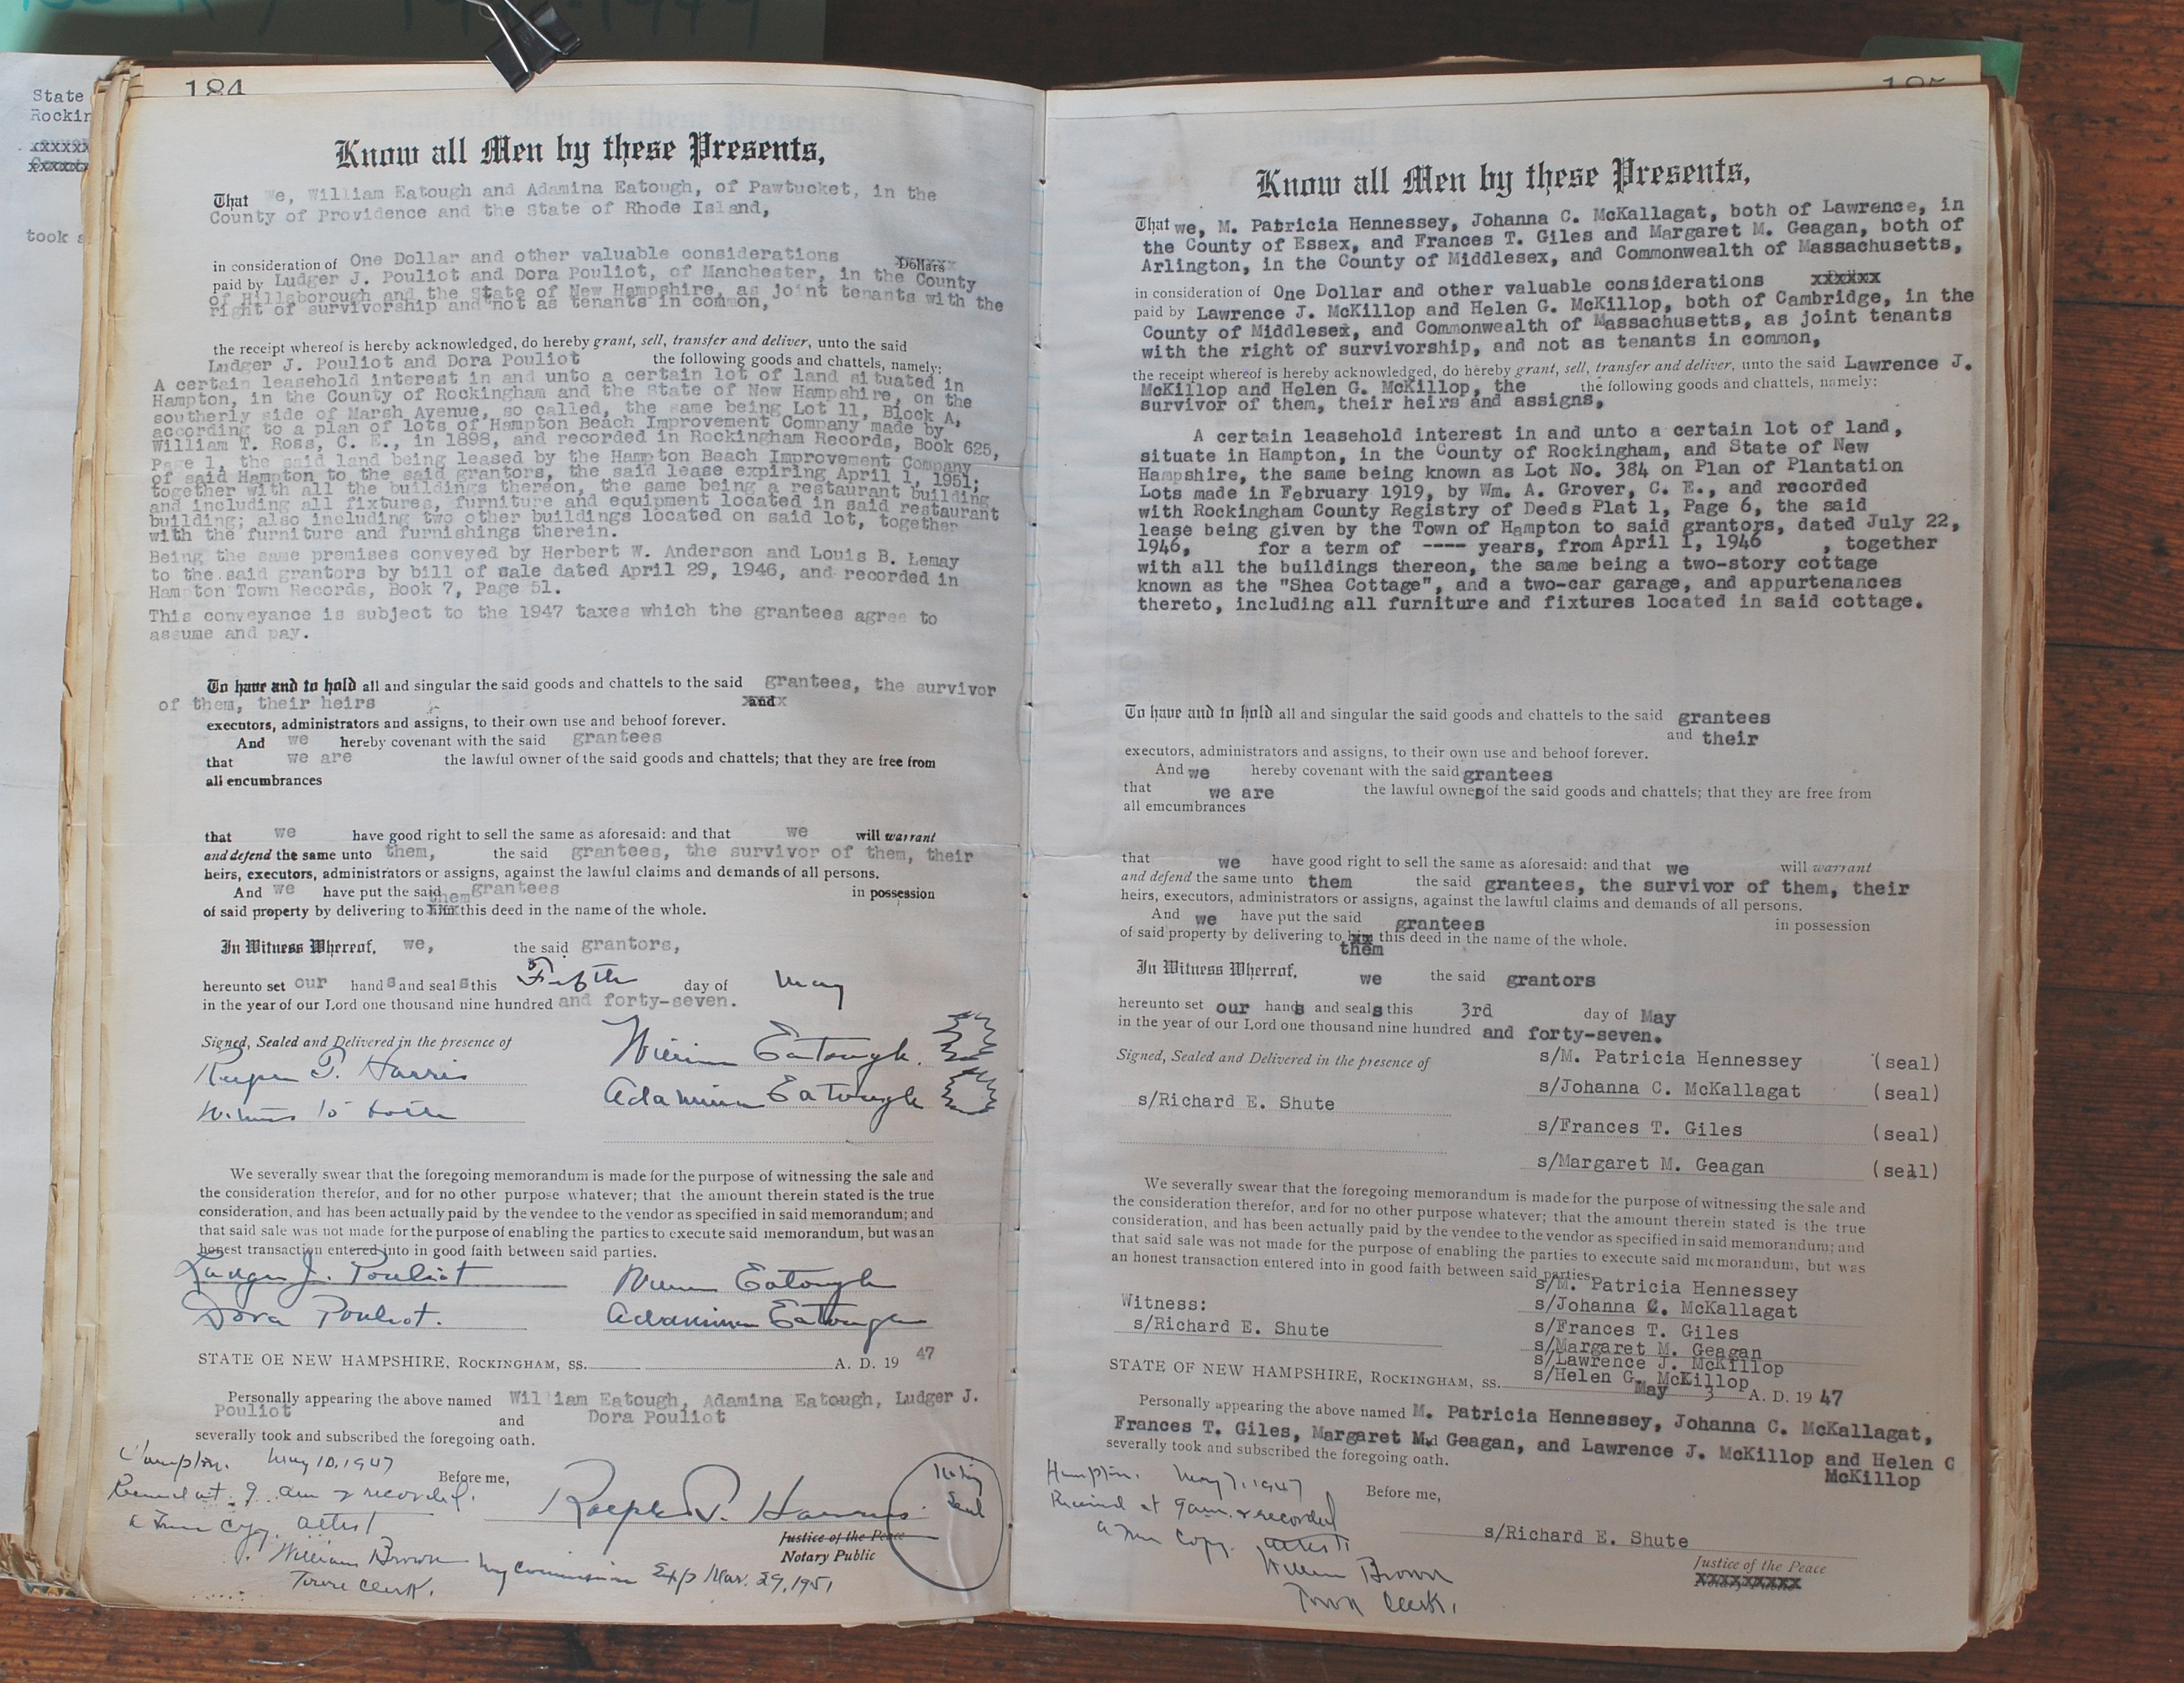 State
Rockin
took s
184
Know all Men by these Presents,
That we, William Eatough and Adamina Eatough, of Pawtucket, in the
County of Providence and the State of Rhode Island,
in consideration of One Dollar and other valuable considerations Dollars
paid by Ludger J. Pouliot and Dora Pouliot, of Manchester, in the County
of Hillsborough and the State of New Hampshire, as joint tenants with the
right of survivorship and not as tenants in common,
the receipt whereof is hereby acknowledged, do hereby grant, sell, transfer and deliver, unto the said
Ludger J. Pouliot and Dora Pouliot the following goods and chattels, namely:
A certain leasehold interest in and unto a certain lot of land situated in
Hampton, in the County of Rockingham and the State of New Hampshire, on the
southerly side of Marsh Avenue, so called, the same being Lot 11, Block A,
according to a plan of lots of Hampton Beach Improvement Company made by
William T. Ross, C. E., in 1898, and recorded in Rockingham Records, Book 625,
Page 1, the said land being leased by the Hampton Beach Improvement Company
of said Hampton to the said grantors, the said lease expiring April 1, 1951;
together with all the buildings thereon, the same being a restaurant building
and including all fixtures, furniture and equipment located in said restaurant
building; also including two other buildings located on said lot, together
with the furniture and furnishings therein.
Being the same premises conveyed by Herbert W. Anderson and Louis B. Lemay
to the said grantors by bill of sale dated April 29, 1946, and recorded in
Hampton Town Records, Book 7, Page 51.
This conveyance is subject to the 1947 taxes which the grantees agree to
assume and pay.
To have and to hold all and singular the said goods and chattels to the said grantees, the survivor
of them, their heirs and
executors, administrators and assigns, to their own use and behoof forever.
And we hereby covenant with the said grantees
that we are the lawful owner of the said goods and chattels; that they are free from
all encumbrances
that we have good right to sell the same as aforesaid: and that we will warrant
and defend the same unto them, the said grantees, the survivor of them, their
heirs, executors, administrators or assigns, against the lawful claims and demands of all persons.
And we have put the said grantees in possession
them
of said property by delivering to him this deed in the name of the whole.
In Witness Whereof, we, the said grantors,
hereunto set our hands and seals this Fifth day of May
in the year of our Lord one thousand nine hundred and forty-seven.
Signed, Sealed and Delivered in the presence of
William Eatough.
Harris
Adamina Eatough
Witness to both
We severally swear that the foregoing memorandum is made for the purpose of witnessing the sale and
the consideration therefor, and for no other purpose whatever; that the amount therein stated is the true
consideration, and has been actually paid by the vendee to the vendor as specified in said memorandum; and
that said sale was not made for the purpose of enabling the parties to execute said memorandum, but was an
honest transaction entered into in good faith between said parties.
Ludger J. Pouliot William Eatough
Dora Pouliot. Adamina Eatough
STATE OE NEW HAMPSHIRE, ROCKINGHAM, SS. A. D. 19 47
Personally appearing the above named William Eatough, Adamina Eatough, Ludger J.
Pouliot and Dora Pouliot
severally took and subscribed the foregoing oath.
Hampton. May 10, 1947
Before me,
Received at 9 am & recorded.
a True Copy. attest
Ralph P. Harris
Notary
Seal
Justice of the Peace
Notary Public
William Brown
Town Clerk.
My Commission Exp Mar. 29, 1951
185
Know all Men by these Presents,
That we, M. Patricia Hennessey, Johanna C. McKallagat, both of Lawrence, in
the County of Essex, and Frances T. Giles and Margaret M. Geagan, both of
Arlington, in the County of Middlesex, and Commonwealth of Massachusetts,
in consideration of One Dollar and other valuable considerations xxxxxx
paid by Lawrence J. McKillop and Helen G. McKillop, both of Cambridge, in the
County of Middlesex, and Commonwealth of Massachusetts, as joint tenants
with the right of survivorship, and not as tenants in common,
the receipt whereof is hereby acknowledged, do hereby grant, sell, transfer and deliver, unto the said Lawrence J.
McKillop and Helen G. McKillop, the the following goods and chattels, namely:
survivor of them, their heirs and assigns,
A certain leasehold interest in and unto a certain lot of land,
situate in Hampton, in the County of Rockingham, and State of New
Hampshire, the same being known as Lot No. 384 on Plan of Plantation
Lots made in February 1919, by Wm. A. Grover, C. E., and recorded
with Rockingham County Registry of Deeds Plat 1, Page 6, the said
lease being given by the Town of Hampton to said grantors, dated July 22,
1946, for a term of ---- years, from April 1, 1946 , together
with all the buildings thereon, the same being a two-story cottage
known as the "Shea Cottage", and a two-car garage, and appurtenances
thereto, including all furniture and fixtures located in said cottage.
To have and to hold all and singular the said goods and chattels to the said grantees
and their
executors, administrators and assigns, to their own use and behoof forever.
And we hereby covenant with the said grantees
that we are the lawful owners of the said goods and chattels; that they are free from
all emcumbrances
that we have good right to sell the same as aforesaid: and that we will warrant
and defend the same unto them the said grantees, the survivor of them, their
heirs, executors, administrators or assigns, against the lawful claims and demands of all persons.
And we have put the said grantees in possession
of said property by delivering to him this deed in the name of the whole.
them
In Witness Whereof, we the said grantors
hereunto set our hands and seals this 3rd day of May
in the year of our Lord one thousand nine hundred and forty-seven.
Signed, Sealed and Delivered in the presence of
s/M. Patricia Hennessey (seal)
s/Johanna C. McKallagat (seal)
s/Richard E. Shute
s/Frances T. Giles (seal)
s/Margaret M. Geagan (sell)
We severally swear that the foregoing memorandum is made for the purpose of witnessing the sale and
the consideration therefor, and for no other purpose whatever; that the amount therein stated is the true
consideration, and has been actually paid by the vendee to the vendor as specified in said memorandum; and
that said sale was not made for the purpose of enabling the parties to execute said memorandum, but was
an honest transaction entered into in good faith between said parties.
s/M. Patricia Hennessey
Witness: s/Johanna C. McKallagat
s/Richard E. Shute s/Frances T. Giles
s/Margaret M. Geagan
s/Lawrence J. McKillop
s/Helen G. McKillop
STATE OF NEW HAMPSHIRE, ROCKINGHAM, SS. May 3 A. D. 19 47
Personally appearing the above named M. Patricia Hennessey, Johanna C. McKallagat,
Frances T. Giles, Margaret M. Geagan, and Lawrence J. McKillop and Helen G
McKillop
severally took and subscribed the foregoing oath.
Hampton. May 7, 1947
Before me,
Received at 9 am. & recorded
a True Copy. attest:
s/Richard E. Shute
William Brown
Town Clerk.
Justice of the Peace
Notary Public